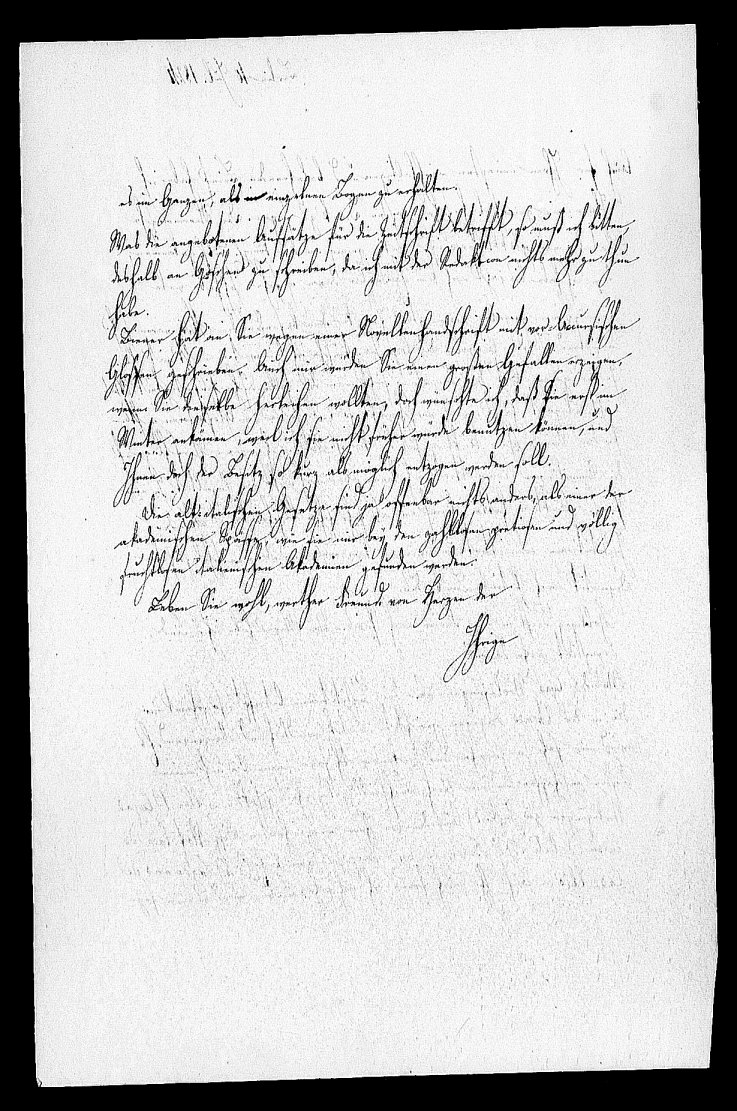 es im Ganzen, als in einzelnen Bogen zu erhalten.
Was die angebotenen Aufsätze für die Zeitschrift betrifft, so muß ich bitten,
deshalb an Göschen zu schreiben, da ich mit der Redaktion nichts mehr zu thun
habe.
Biener hat an Sie wegen einer Novellenhandschrift mit vor-Accursischen
Glossen geschrieben. Auch mir würden Sie einen großen Gefallen erzeigen,
wenn Sie dieselbe herleihen wollten, doch wünschte ich, daß sie erst im
Winter ankämen, weil ich sie nicht früher würde benutzen können, und
Ihnen doch der Besitz so kurz als möglich entzogen werden soll.
Die alt-italischen Gesetze sind ja offenbar nichts anders, als einer der
akademischen Spässe, wie sie nur bey den zahllosen pretiosen und völlig
fruchtlosen italienischen Akademien gefunden werden.
Leben Sie wohl, werther Freund, von Herzen der
Ihrige